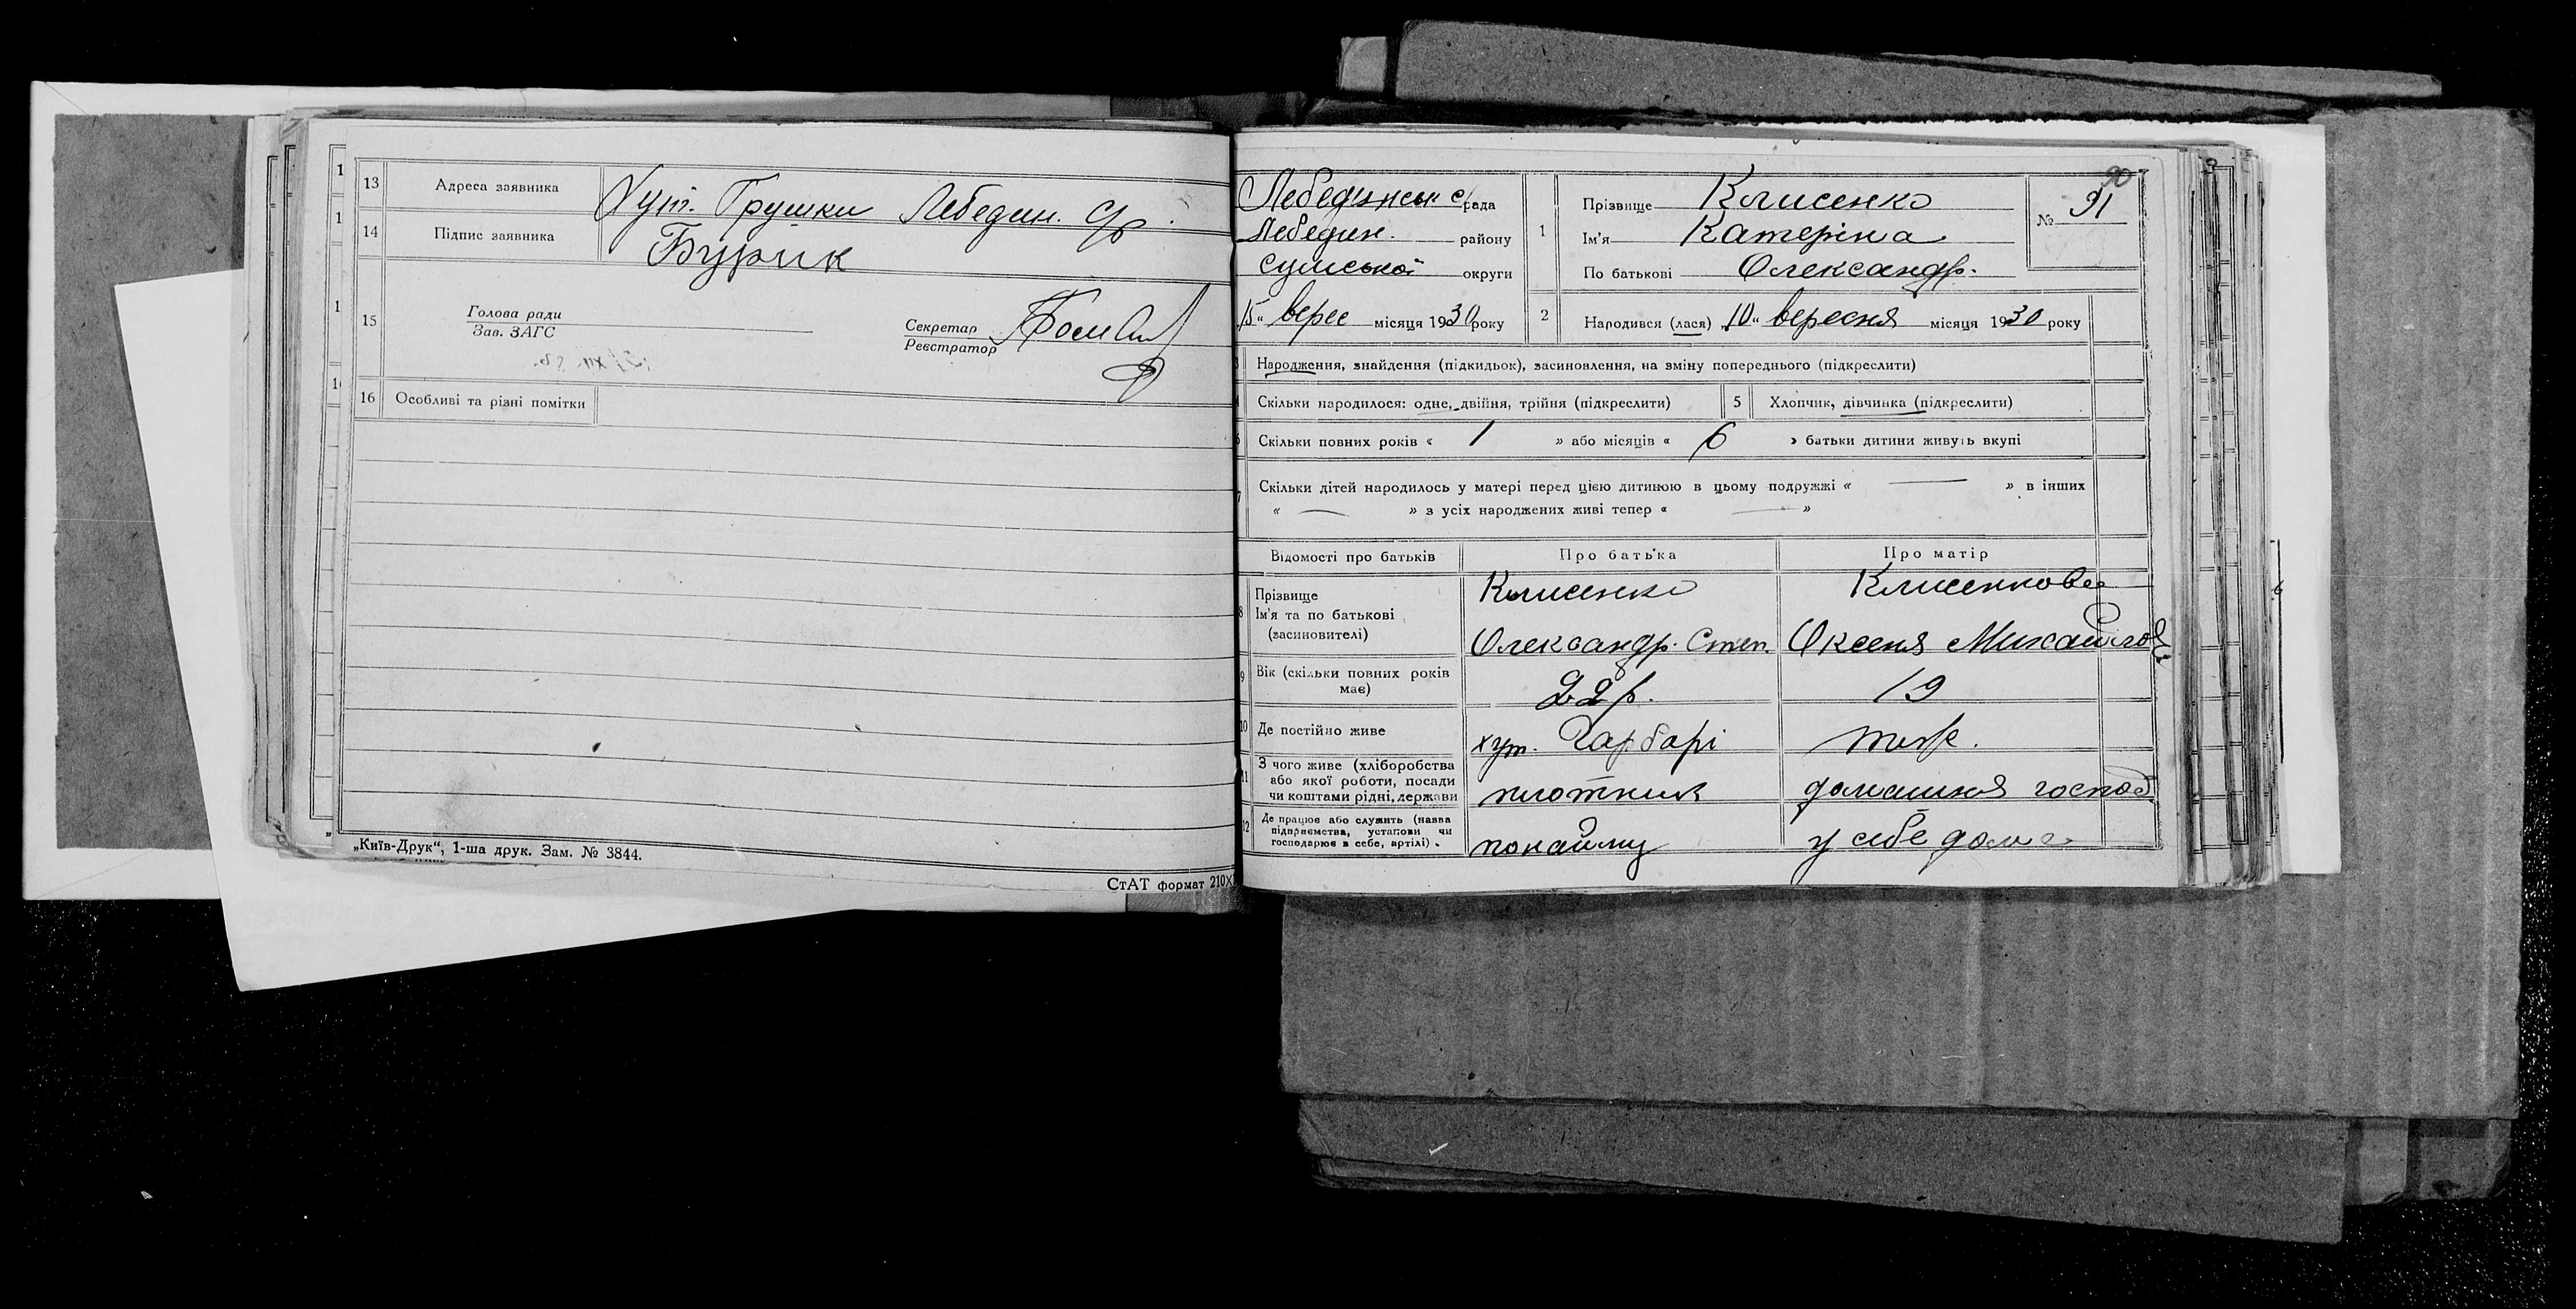 13 Адреса заявника Хут. Грушки Лебедин. с/р.
14 Підпис заявника Бурик
15 Голова ради
Зав. ЗАГС
Секретар
Реєстратор
16 Особливі та різні помітки
„Київ-Друк“, 1-ша друк. Зам. № 3844.
СтАТ формат 210×
90
Лебединськ с/рада
Лебедин. району
Сумської округи
„15“ верес місяця 1930 року
1 Прізвище Клисенко
Ім'я Катеріна
По батькові Олександр.
№ 91
2 Народився (лася) „10“ вересня місяця 1930 року
Народження, знайдення (підкидьок), засиновлення, на зміну попереднього (підкреслити)
Скільки народилося: одне, двійня, трійня (підкреслити) 5 Хлопчик, дівчинка (підкреслити)
Скільки повних років « 1 » або місяців « 6 » батьки дитини живуть вкупі
Скільки дітей народилось у матері перед цією дитиною в цьому подружжі « — » в інших
« — » з усіх народжених живі тепер « — »
Відомості про батьків Про батька Про матір
8 Прізвище Клисенко Клисенкова
Ім'я та по батькові
(засновителі) Олександр. Степ. Оксеня Михайлов
9 Вік (скільки повних років
має) 22 р. 19
10 Де постійно живе хут. Гарбарі тож.
11 З чого живе (хліборобства
або якої роботи, посади
чи коштами рідні, держави плотник домашня господ
12 Де працює або служить (назва
підприємства, установи чи
господарює в себе, артілі). понайму у себе дома